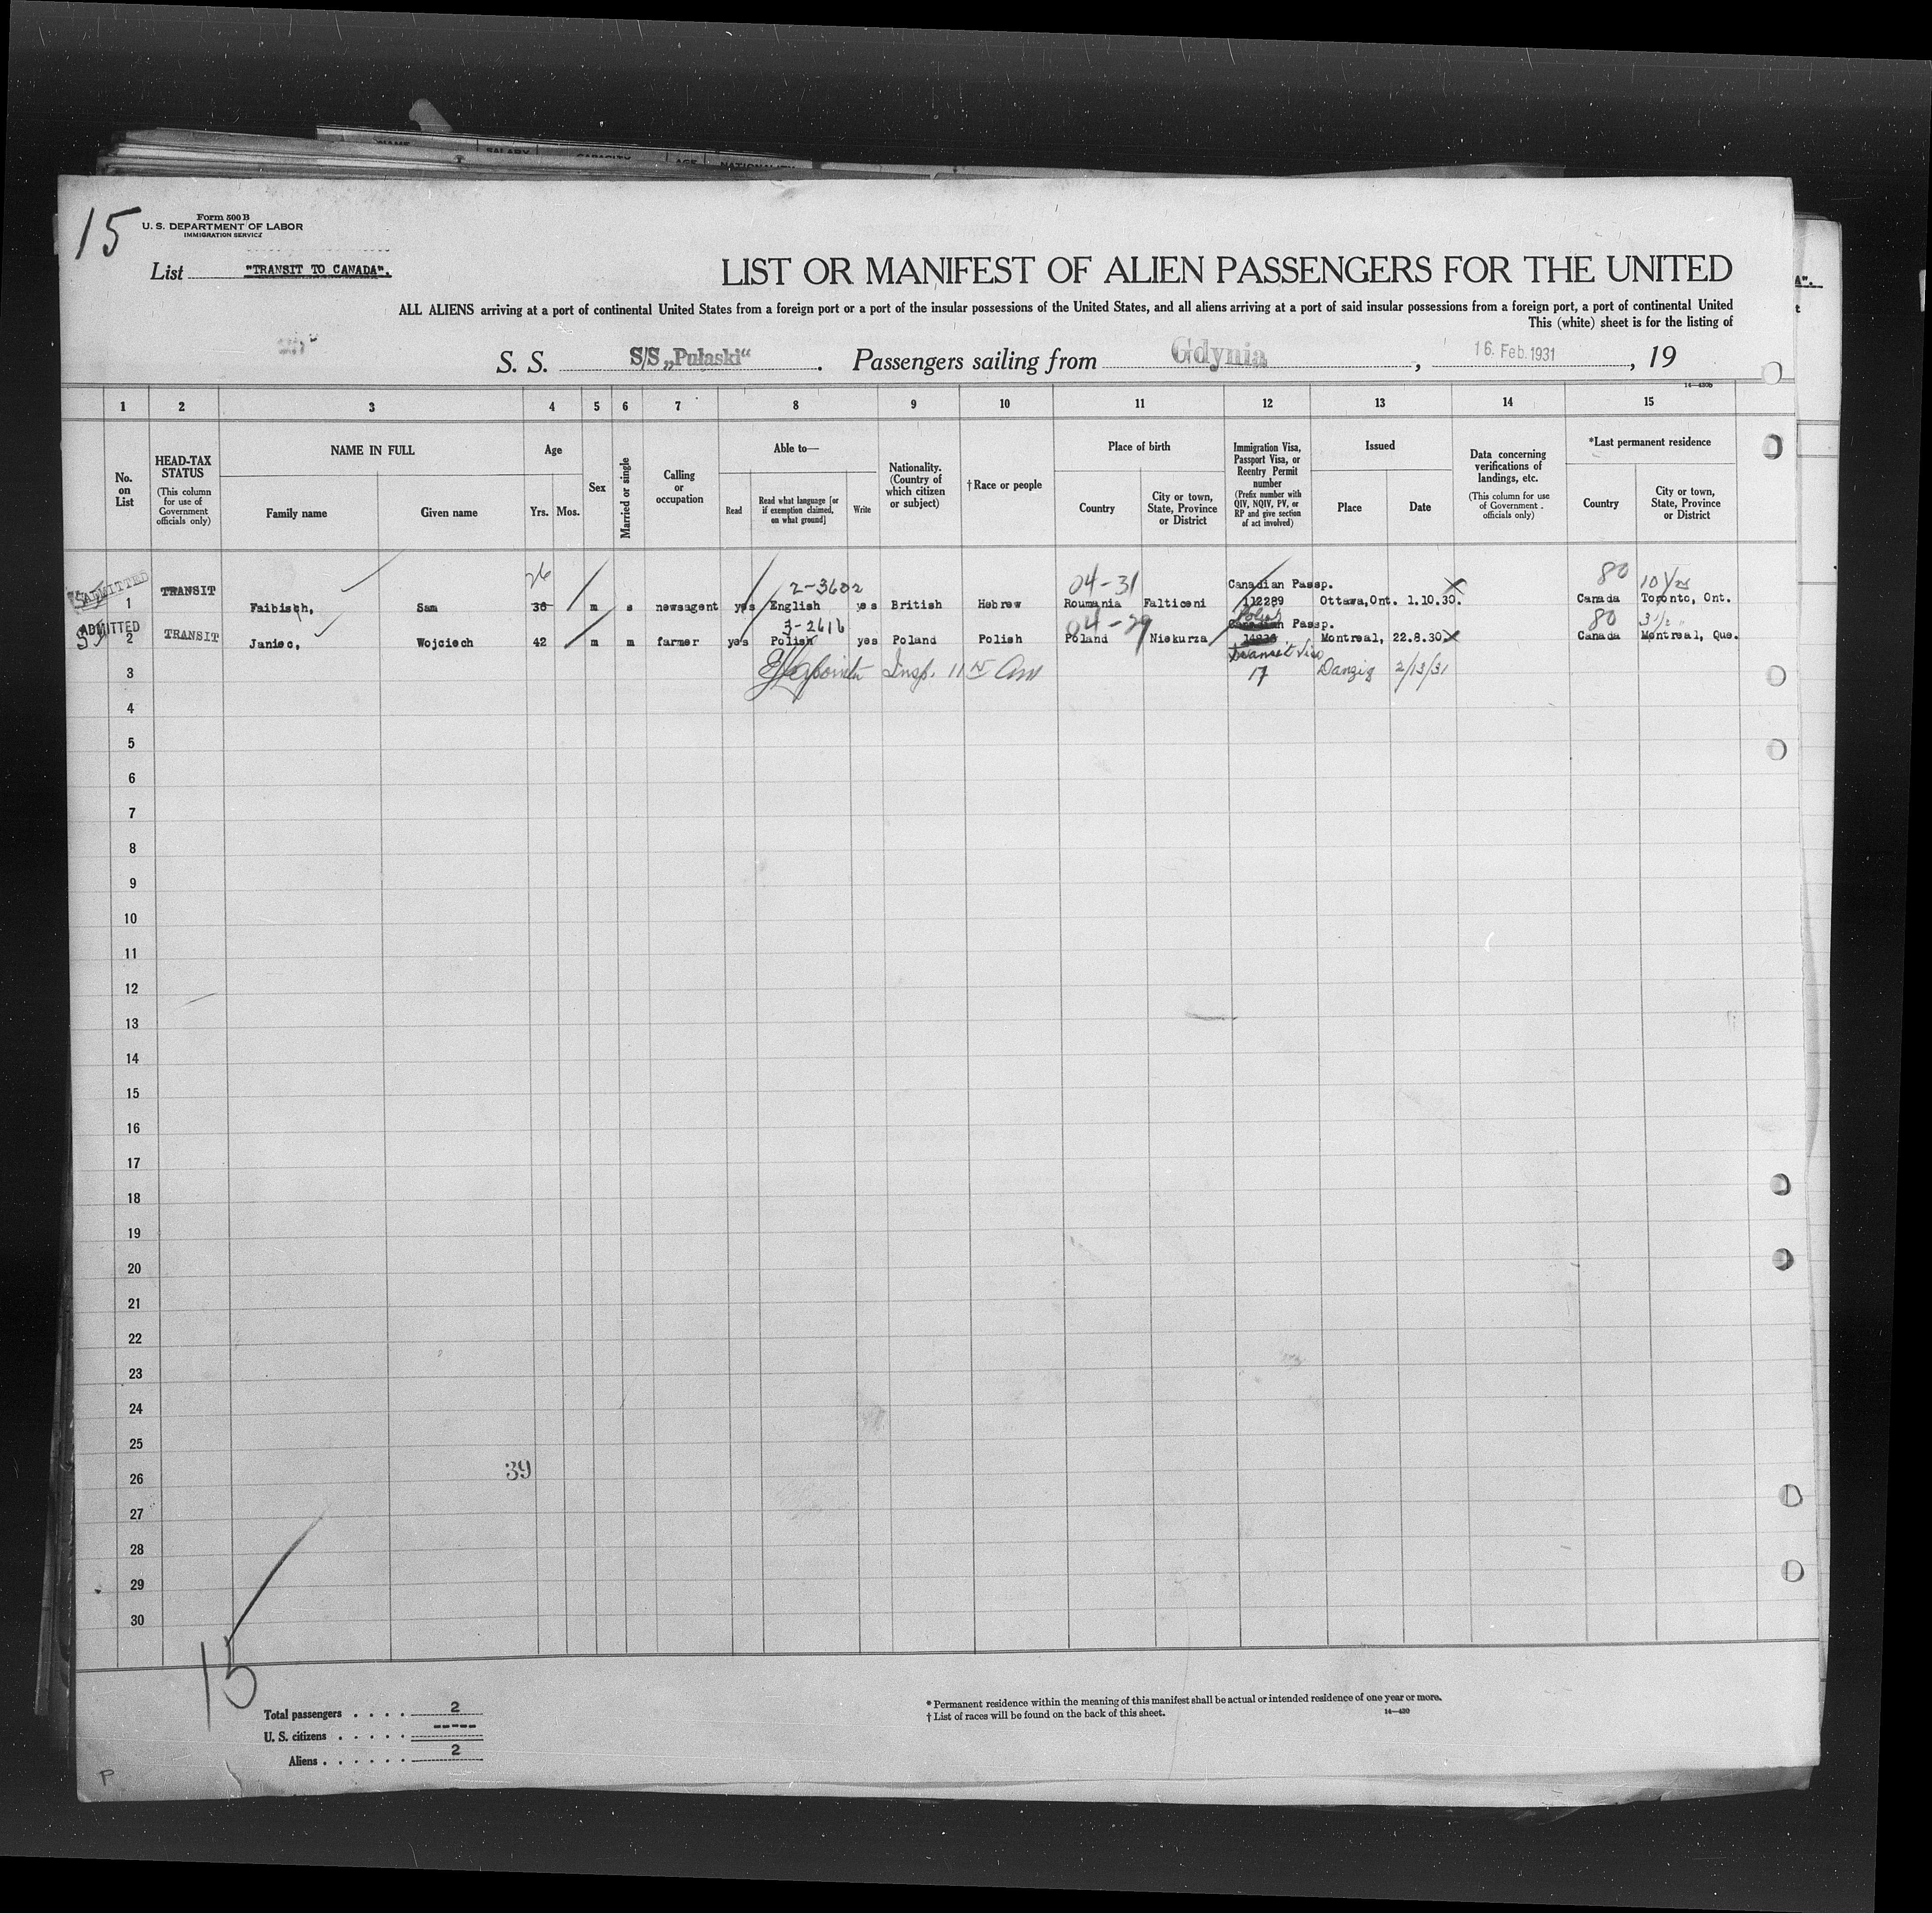 NAME SALARY CAPACITY AGE NATIONALITY
15
Form 500 B
U. S. DEPARTMENT OF LABOR
IMMIGRATION SERVICE
List "TRANSIT TO CANADA".
LIST OR MANIFEST OF ALIEN PASSENGERS FOR THE UNITED
ALL ALIENS arriving at a port of continental United States from a foreign port or a port of the insular possessions of the United States, and all aliens arriving at a port of said insular possessions from a foreign port, a port of continental United
This (white) sheet is for the listing of
S. S. S/S „Pułaski“. Passengers sailing from Gdynia, 16. Feb. 1931, 19
14—430b
1 2 3 4 5 6 7 8 9 10 11 12 13 14 15
No. on List
HEAD-TAX STATUS
(This column for use of Government officials only)
NAME IN FULL
Family name
Given name
Age
Yrs. Mos.
Sex
Married or single
Calling or occupation
Able to—
Read
Read what language [or if exemption claimed, on what ground]
Write
Nationality. (Country of which citizen or subject)
†Race or people
Place of birth
Country
City or town, State, Province or District
Immigration Visa, Passport Visa, or Reentry Permit number
(Prefix number with QIV, NQIV, PV, or RP and give section of act involved)
Issued
Place
Date
Data concerning verifications of landings, etc.
(This column for use of Government officials only)
*Last permanent residence
Country
City or town, State, Province or District
26 2-3602 04-31 Canadian Passp. 80 10 1/2
ADMITTED 1 TRANSIT Faibisch, Sam 36 m s newsagent yes English yes British Hebrew Roumania Falticeni 112289 Ottawa,Ont. 1.10.30. Canada Toronto, Ont.
3-2616 04-29 Polish Canadian Passp. 80 3 1/2 "
ADMITTED 2 TRANSIT Janiec, Wojciech 42 m m farmer yes Polish yes Poland Polish Poland Niekurza Montreal, 22.8.30 Canada Montreal, Que.
Transit Visa
3 Insp. 17 Danzig 2/13/31
4
5
6
7
8
9
10
11
12
13
14
15
16
17
18
19
20
21
22
23
24
25
26 39
27
28
29
30
15
Total passengers . . . . 2
U. S. citizens . . . . . -----
Aliens . . . . . . 2
* Permanent residence within the meaning of this manifest shall be actual or intended residence of one year or more.
† List of races will be found on the back of this sheet.
14—430
P